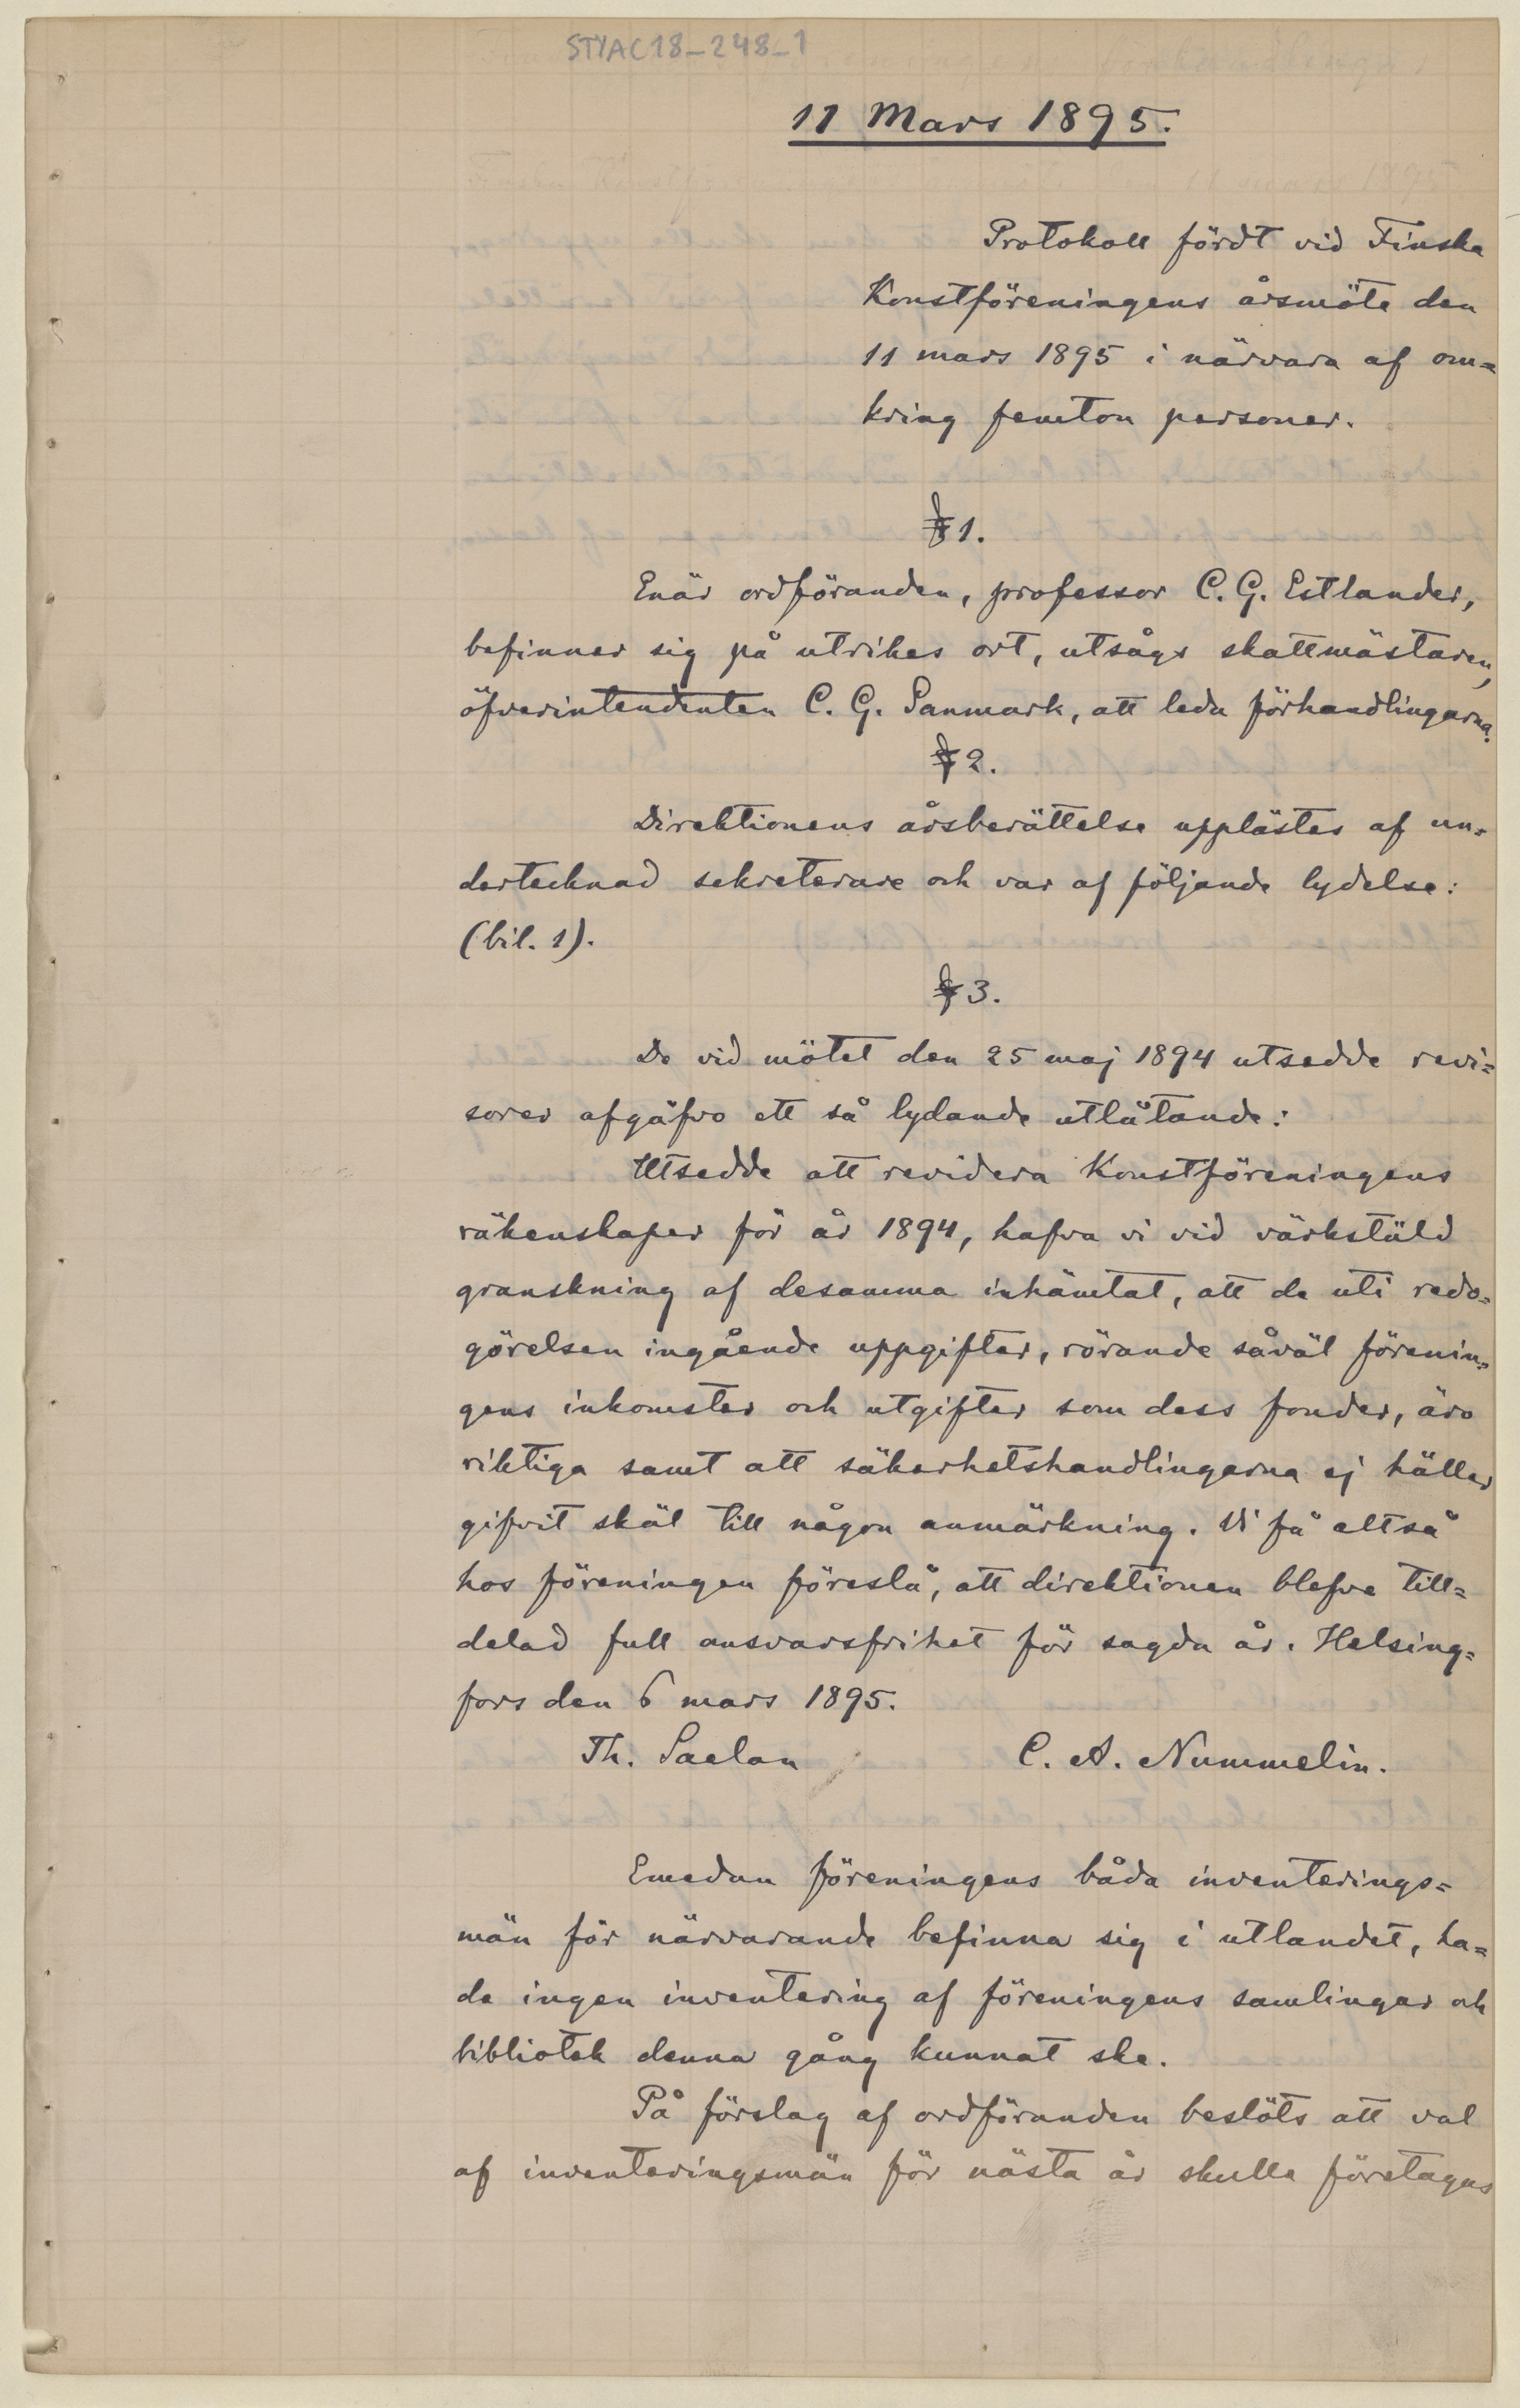 STYAC18-248-1
11 Mars 1895.
Protokoll fördt vid Finska
Konstföreningens årsmöte den
11 mars 1895 i närvara af om=
kring femton personer.
§ 1.
Enär ordföranden, professor C. G. Estlander,
befinner sig på utrikes ort, utsågs skattmästaren,
öfverintendenten C. G. Sanmark, att leda förhandlingarna.
§ 2.
Direktionens årsberättelse upplästes af un=
dertecknad sekreterare och var af följande lydelse:
(bil. 1).
§ 3.
De vid mötet den 25 maj 1894 utsedde revi=
sorer afgåfvo ett så lydande utlåtande:
Utsedde att revidera Konstföreningens
räkenskaper för år 1894, hafva vi vid värkstäld
granskning af desamma inhämtat, att de uti redo=
görelsen ingående uppgifter, rörande såväl förenin=
gens inkomster och utgifter som dess fonder, äro
riktiga samt att säkerhetshandlingarna ej häller
gifvit skäl till någon anmärkning. Vi få altså
hos föreningen föreslå, att direktionen blefve till=
delad full ansvarsfrihet för sagda år. Helsing=
fors den 6 mars 1895.
Th. Saelan C. A. Nummelin.
Emedan föreningens båda inventerings=
män för närvarande befinna sig i utlandet, ha=
de ingen inventering af föreningens samlingar och
bibliotek denna gång kunnat ske.
På förslag af ordföranden beslöts att val
af inventeringsmän för nästa år skulle företagas